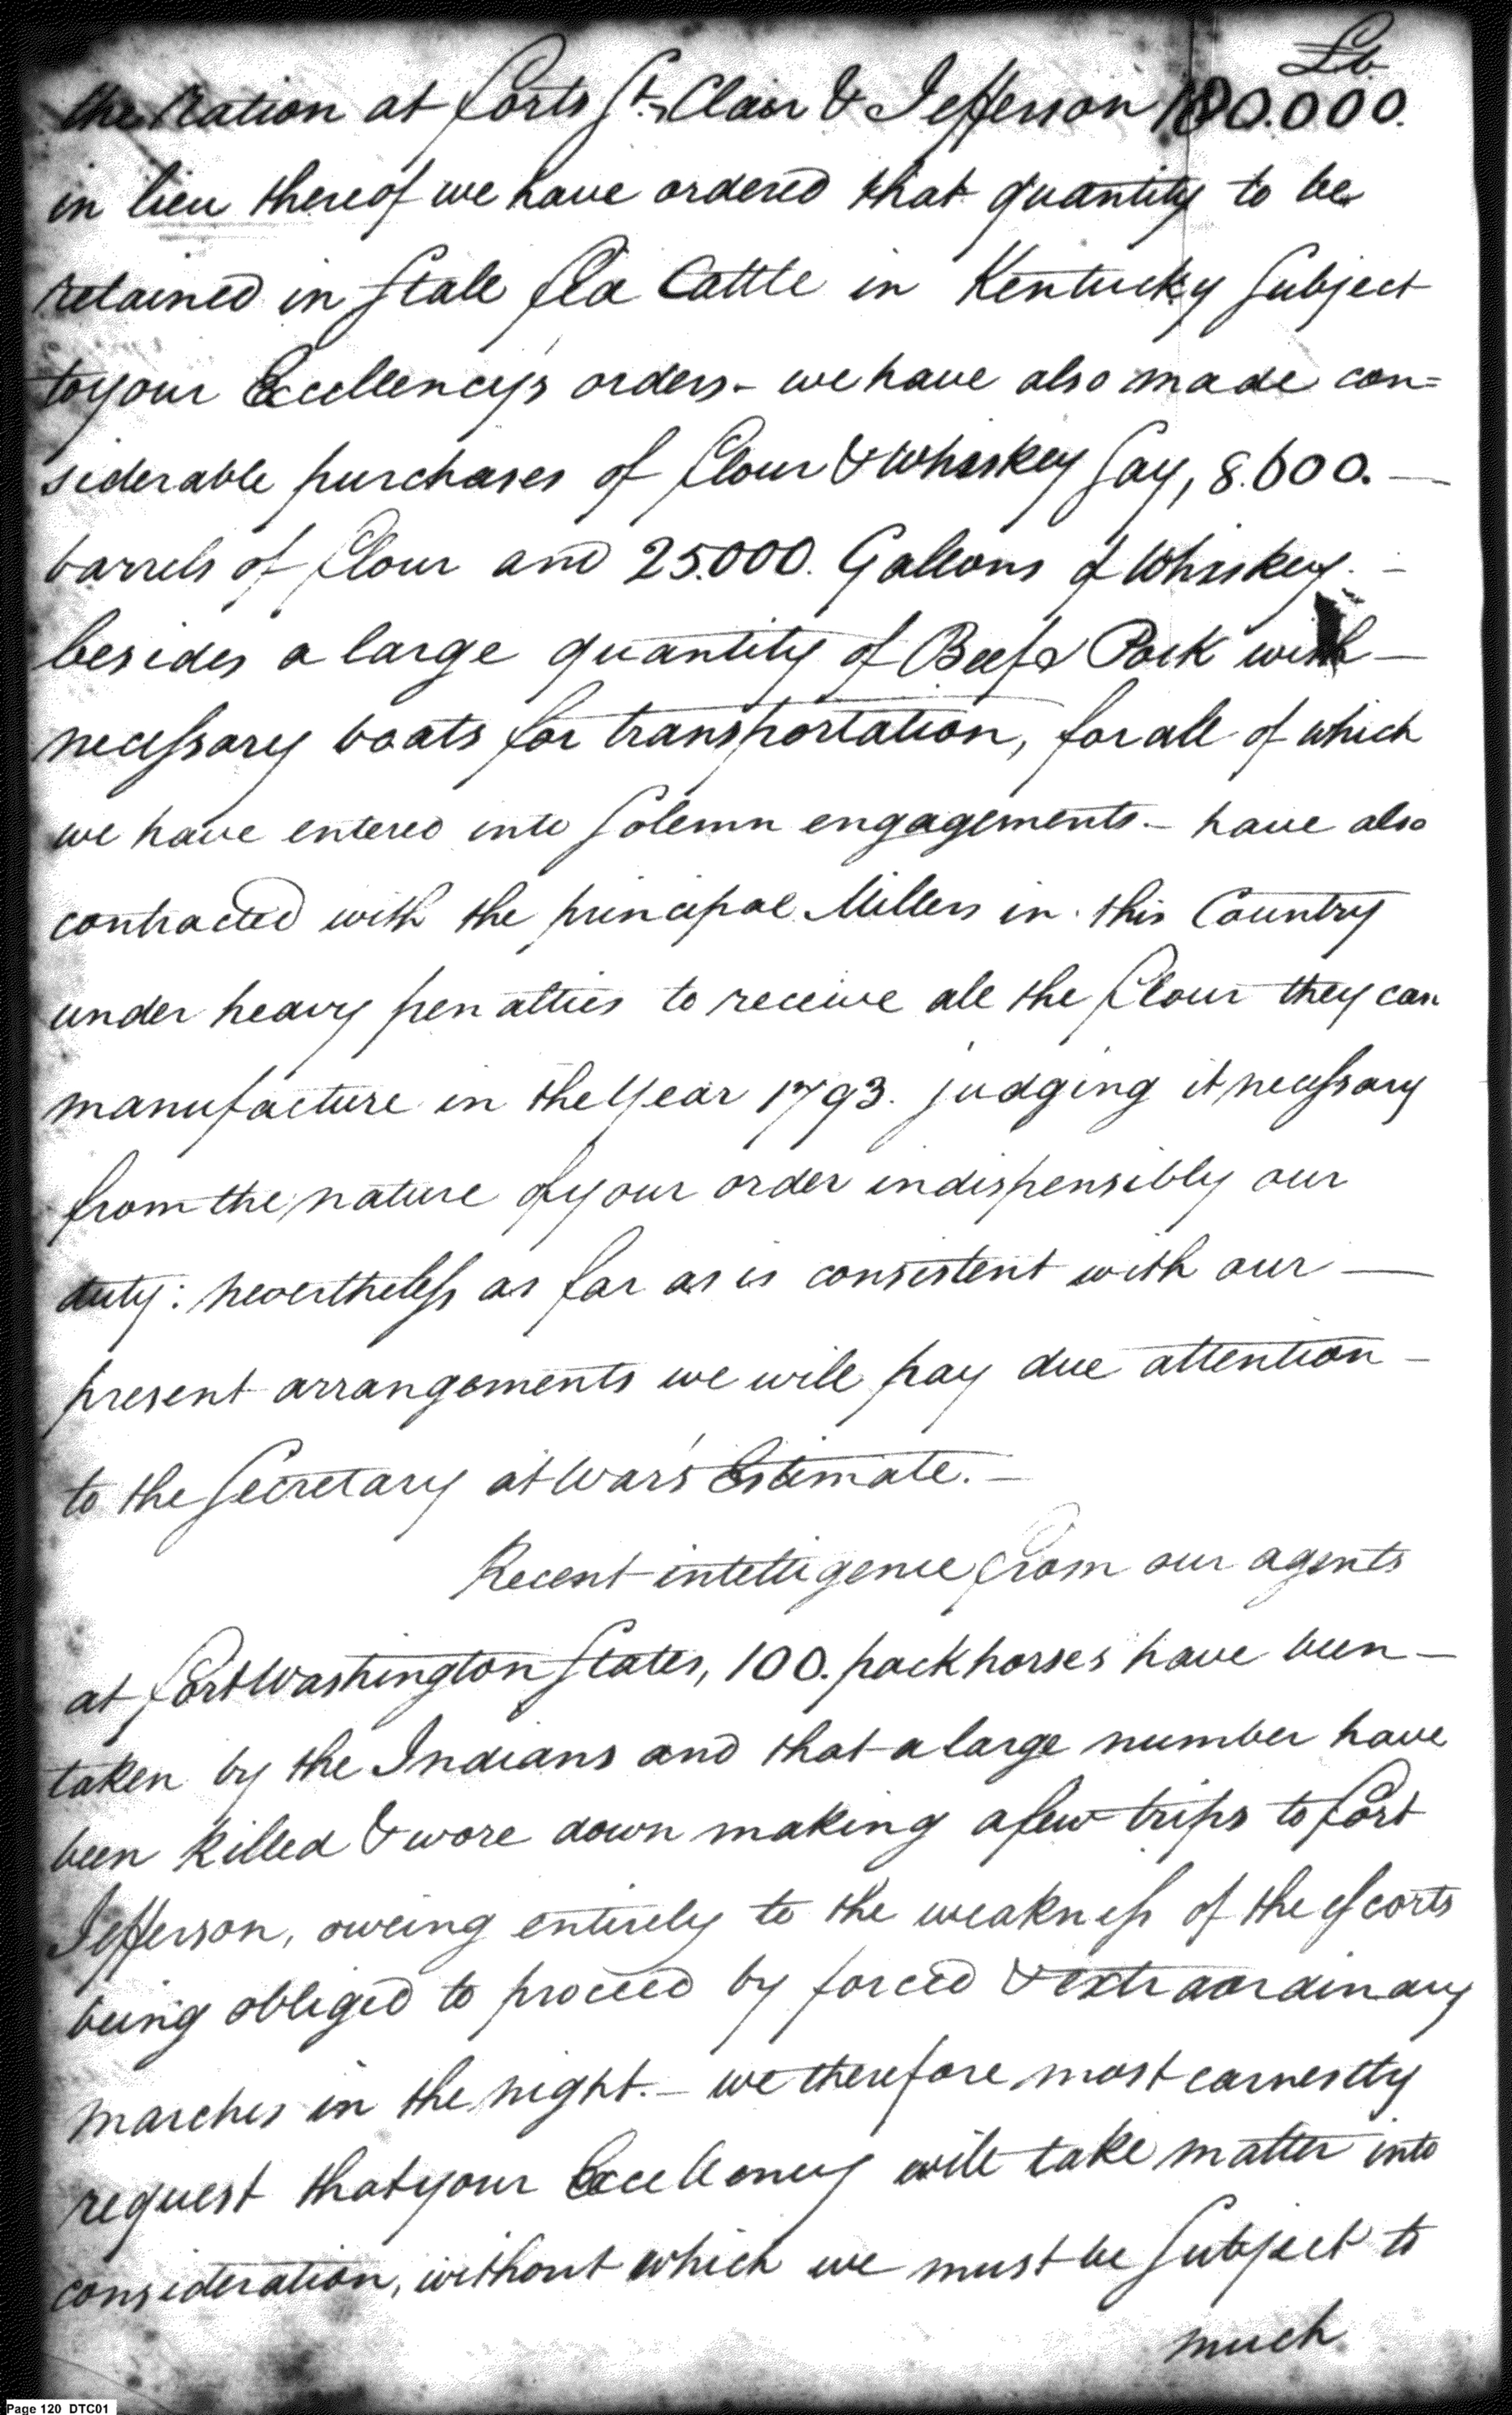 Lb.
the Ration at forts St. Clair & Jefferson 180.000.
in lieu thereof we have ordered that quantity to be
retained in Stall fed Cattle in Kentucky Subject
to your Excellency's orders - we have also made con=
siderable purchases of flour & Whiskey Say, 8.600. —
barrels of flour and 25.000. Gallons of Whiskey. -
besides a large quantity of Beef & Pork with —
necessary boats for transportation, for all of which
we have entered into Solemn engagements. - have also
contracted with the principal Millers in this Country
under heavy penalties to receive all the flour they can
manufacture in the Year 1793. judging it necessary
from the nature of your order indispensibly our
duty: nevertheless as far as is consistent with our —
present arrangements we will pay due attention -
to the Secretary at War's Estimate. -
Recent intelligence from our agents
at fort Washington States, 100. packhorses have been -
taken by the Indians and that a large number have
been killed & wore down making a few trips to fort
Jefferson, oweing entirely to the weakness of the escorts
being obliged to proceed by forced & extraordinary
marches in the night. - we therefore most earnestly
request that your Excellency will take matter into
consideration, without which we must be Subject to
much
Page 120 DTC01